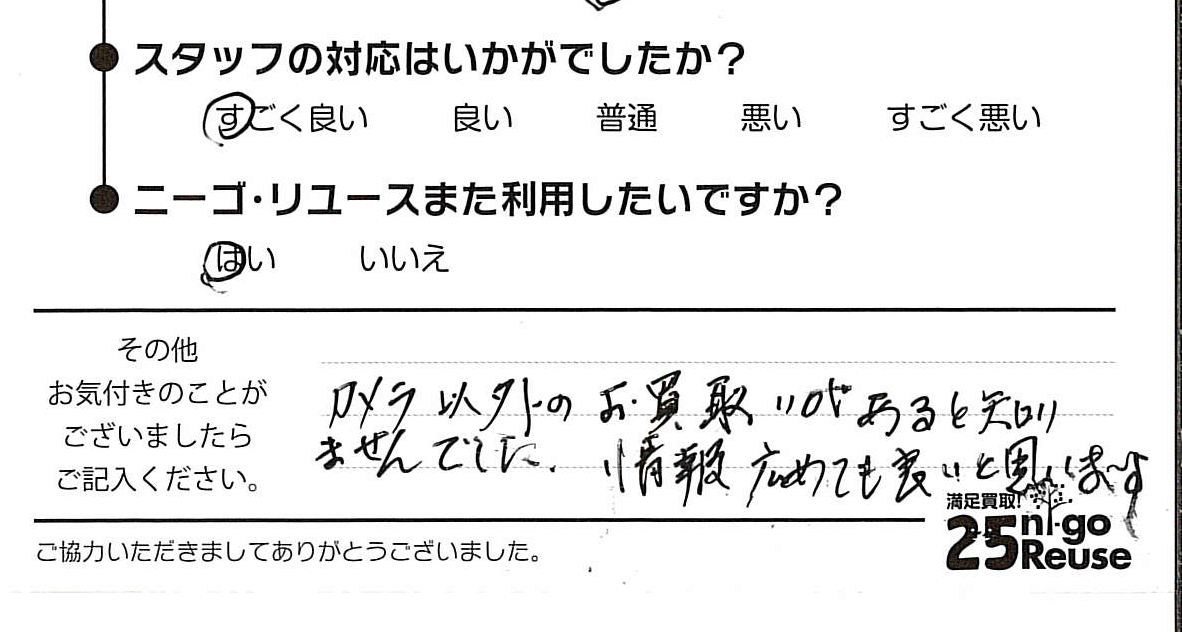 スタッフの対応はいかがでしたか？
すごく良い 良い 普通 悪い すごく悪い
ニーゴ・リユースまた利用したいですか？
はい いいえ
その他
お気付きのことが
ございましたら
ご記入ください。
カメラ以外のお買取りがあると知り
ませんでした. 情報広めても良いと思います
満足買取!
25 ni-go
Reuse
ご協力いただきましてありがとうございました。